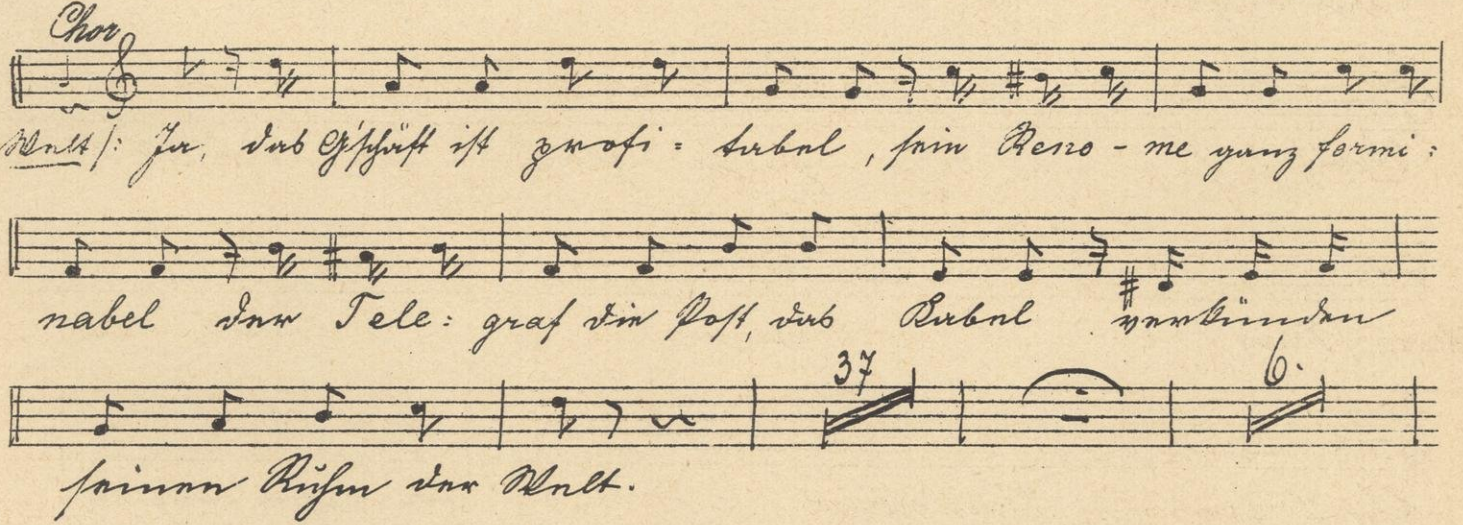 Chor
Welt /: Ja, das G'schäft ist profi = tabel, sein Reno - me ganz formi =
nabel der Tele = graf die Post, das Kabel verkünden
37 6.
seinen Ruhm der Welt.